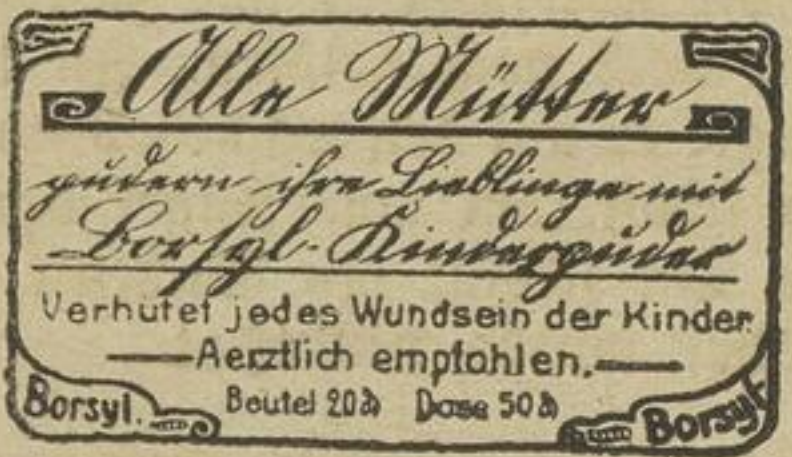 Alle Mütter
pudern ihre Lieblinge mit
Borsyl-Kinderpuder
Verhütet jedes Wundsein der Kinder.
Aerztlich empfohlen.
Borsyl. Beutel 20₰ Dose 50₰ Borsyl